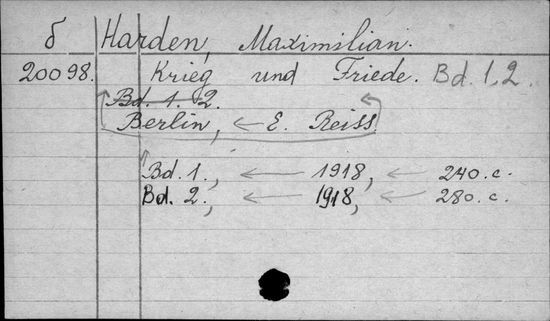 δ Harden, Maximilian.
20098. Krieg und Friede. Bd. 1, 2.
Bd. 1. 2.
Berlin, ← E. Reiss.
Bd. 1., ← 1918, ← 240. c.
Bd. 2., ← 1918, ← 280. c.